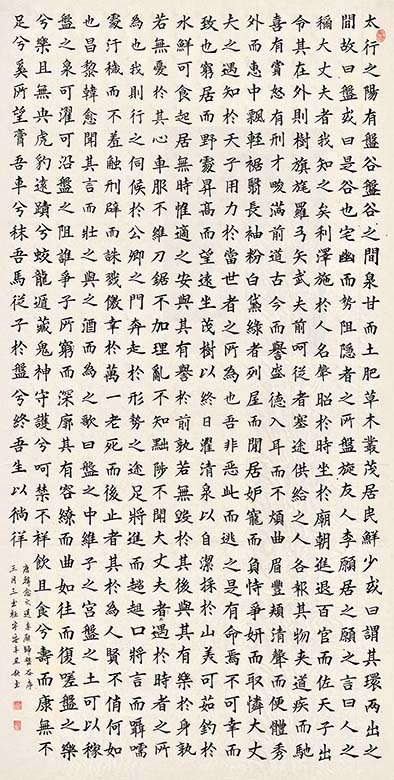 太行之陽有盤谷盤谷之間泉甘而土肥草木叢茂居民鮮少或曰謂其環兩山之
間故曰盤或曰是谷也宅幽而勢阻隱者之所盤旋友人李愿居之愿之言曰人之
稱大丈夫者我知之矣利澤施於人名聲昭於時坐於廟朝進退百官而佐天子出
令其在外則樹旗旄羅弓矢武夫前呵從者塞途供給之人各執其物夾道疾而馳
喜有賞怒有刑才畯滿前道古今而譽盛德入耳而不煩曲眉豐頰清聲而便體秀
外而惠中飄輕裾翳長袖粉白黛綠者列屋而閒居妒寵而負恃爭妍而取憐大丈
夫之遇知於天子用力於當世者之所為也吾非惡此而逃之是有命焉不可幸而
致也窮居而野處昇高而望遠坐茂樹以終日濯清泉以自潔採於山美可茹釣於
水鮮可食起居無時惟適之安與其有譽於前孰若無毀於其後與其有樂於身孰
若無憂於其心車服不維刀鋸不加理亂不知黜陟不聞大丈夫遇於時者之所
為也我則行之伺候於公卿之門奔走於形勢之途足將進而趑趄口將言而囁嚅
處汙穢而不羞觸刑辟而誅戮僥幸於萬一老死而後止者其於為人賢不肖何如
也昌黎韓愈聞其言而壯之與之酒而為之歌曰盤之中維子之宮盤之土可以稼
盤之泉可濯可沿盤之阻誰爭子所窈而深廓其有容繚而曲如往而復嗟盤之樂
兮樂且無央虎豹遠蹟兮蛟龍遁藏鬼神守護兮呵禁不祥飲且食兮壽而康無不
足兮奚所望膏吾車兮秣吾馬從子於盤兮終吾生以徜徉
唐韓愈文送李愿歸盤谷序
三月三